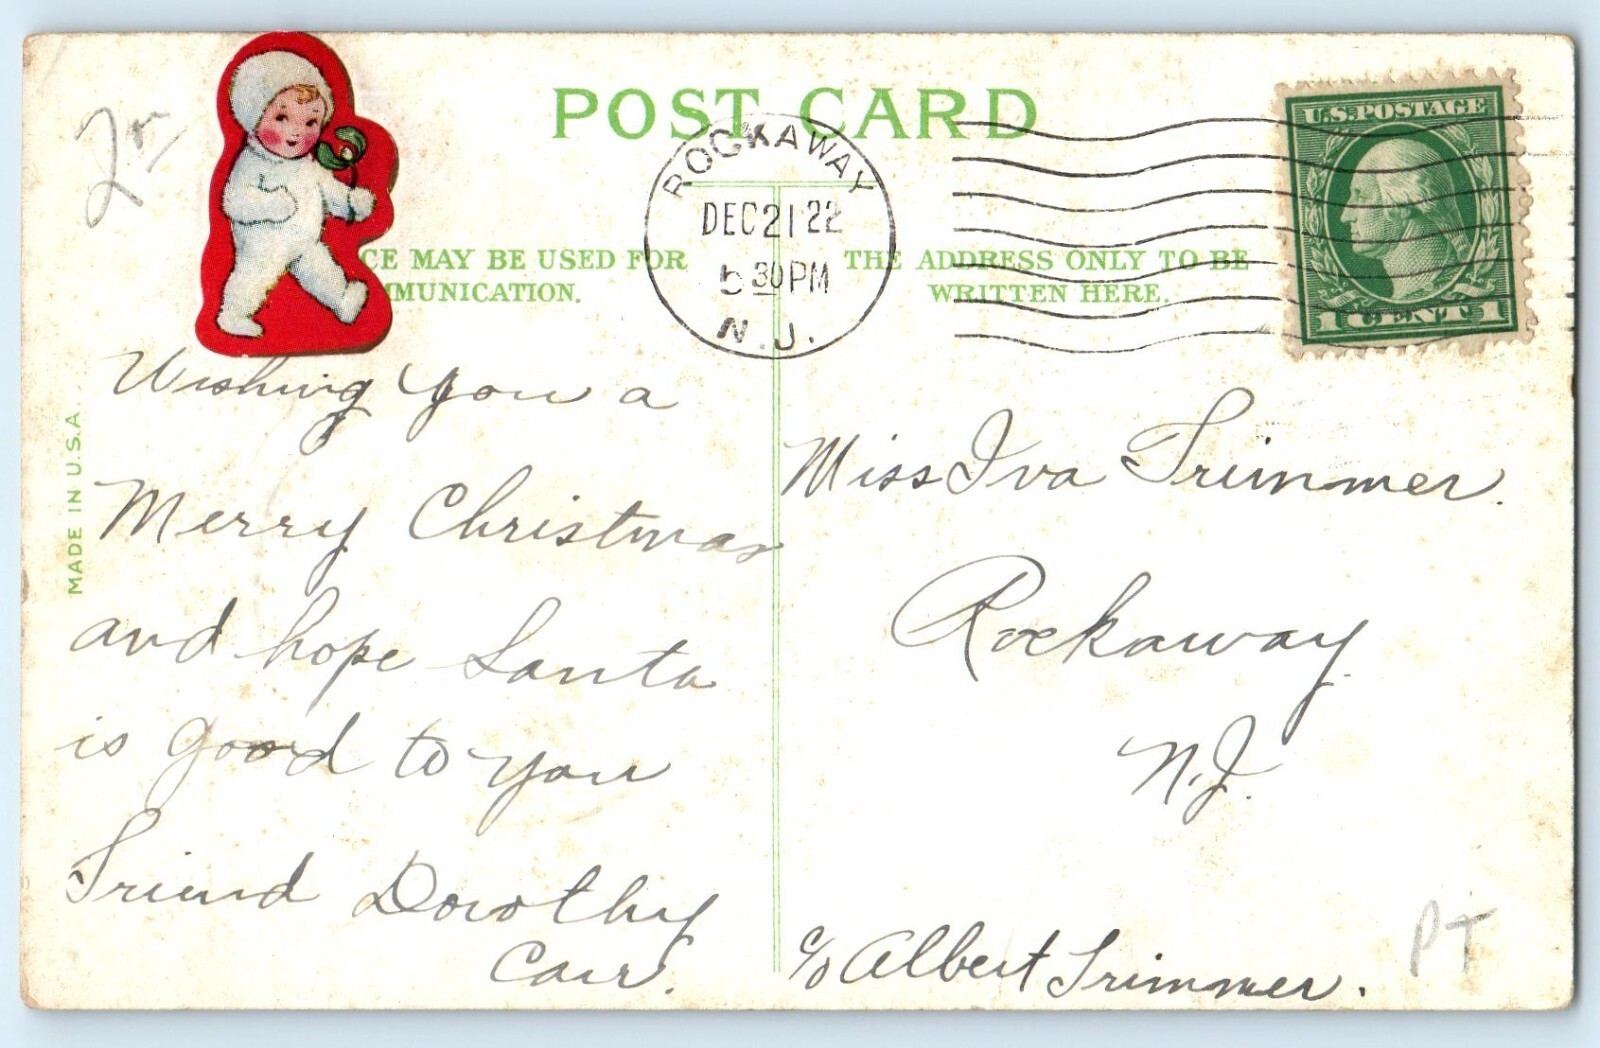 2
POST CARD
ROCKAWAY
DEC 21 22
5 30 PM
N.J.
U.S. POSTAGE
1 CENT 1
CE MAY BE USED FOR
MUNICATION.
THE ADDRESS ONLY TO BE
WRITTEN HERE.
MADE IN U.S.A.
Wishing you a
Merry Christmas
and hope Santa
is good to you
Friend Dorothy
Carr.
Miss Iva Trimmer.
Rockaway
N.J.
c/o Albert Trimmer.
PT